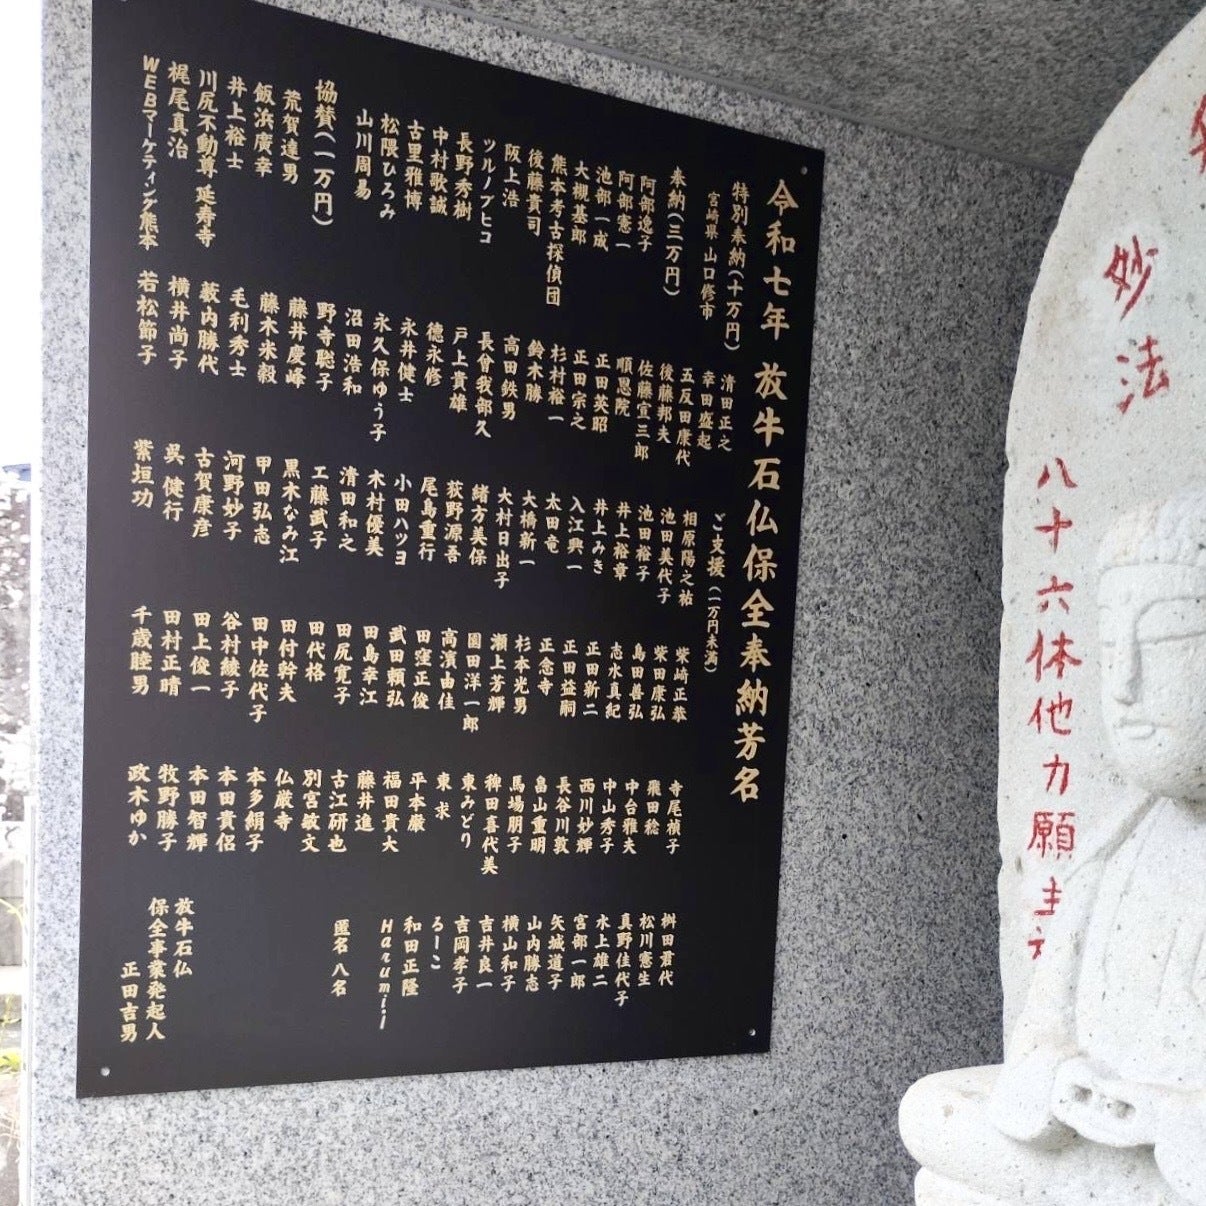 令和七年 放牛石仏保全奉納芳名
特別奉納(十万円)
宮崎県 山口修市
奉納(三万円)
阿部逸子
阿部憲一
池部一成
大槻基郎
熊本考古探偵団
後藤貴司
阪上浩
ツルノブヒコ
長野秀樹
中村歌誠
古里雅博
松隈ひろみ
山川周易
協賛(一万円)
荒賀達男
飯浜廣幸
井上裕士
川尻不動尊 延寿寺
梶尾真治
WEBマーケティング熊本
清田正之
幸田盛起
五反田康代
後藤邦夫
佐藤宣三郎
順恩院
正田英昭
正田宗之
杉村裕一
鈴木勝
高田鉄男
長曾我部久
戸上貴雄
德永修
永井健士
永久保ゆう子
沼田浩和
野寺聡子
藤井慶峰
藤木米毅
毛利秀士
藪内勝代
横井尚子
若松節子
ご支援(一万円未満)
相原陽之祐
池田美代子
池田裕子
井上裕章
井上みき
入江興一
太田竜
大橋新一
大村日出子
緒方美保
荻野源吾
尾島重行
小田ハツヨ
木村優美
清田和之
工藤武子
黒木なみ江
甲田弘志
河野妙子
古賀康彦
呉 健行
紫垣功
柴崎正恭
柴田康弘
島田善弘
志水真紀
正田新二
正田益嗣
正念寺
杉本光男
瀬上芳輝
園田洋一郎
高濱由佳
田窪正俊
武田頼弘
田島幸江
田尻寛子
田代格
田付幹夫
田中佐代子
谷村綾子
田上俊一
田村正晴
千歳睦男
寺尾禎子
飛田稔
中台雅夫
中山秀子
西川妙輝
長谷川敦
畠山重明
馬場朋子
稗田喜代美
東みどり
東 求
平本厳
福田貴大
藤井進
古江研也
別宮敏文
仏厳寺
本多絹子
本田貴侶
本田智輝
牧野勝子
政木ゆか
桝田君代
松川憲生
真野佳代子
水上雄二
宮部一郎
矢城道子
山内勝志
横山和子
吉井良一
吉岡孝子
ろーこ
和田正隆
Harumi.i
匿名 八名
放牛石仏
保全事業発起人
正田吉男
妙法
八十六体他力願主